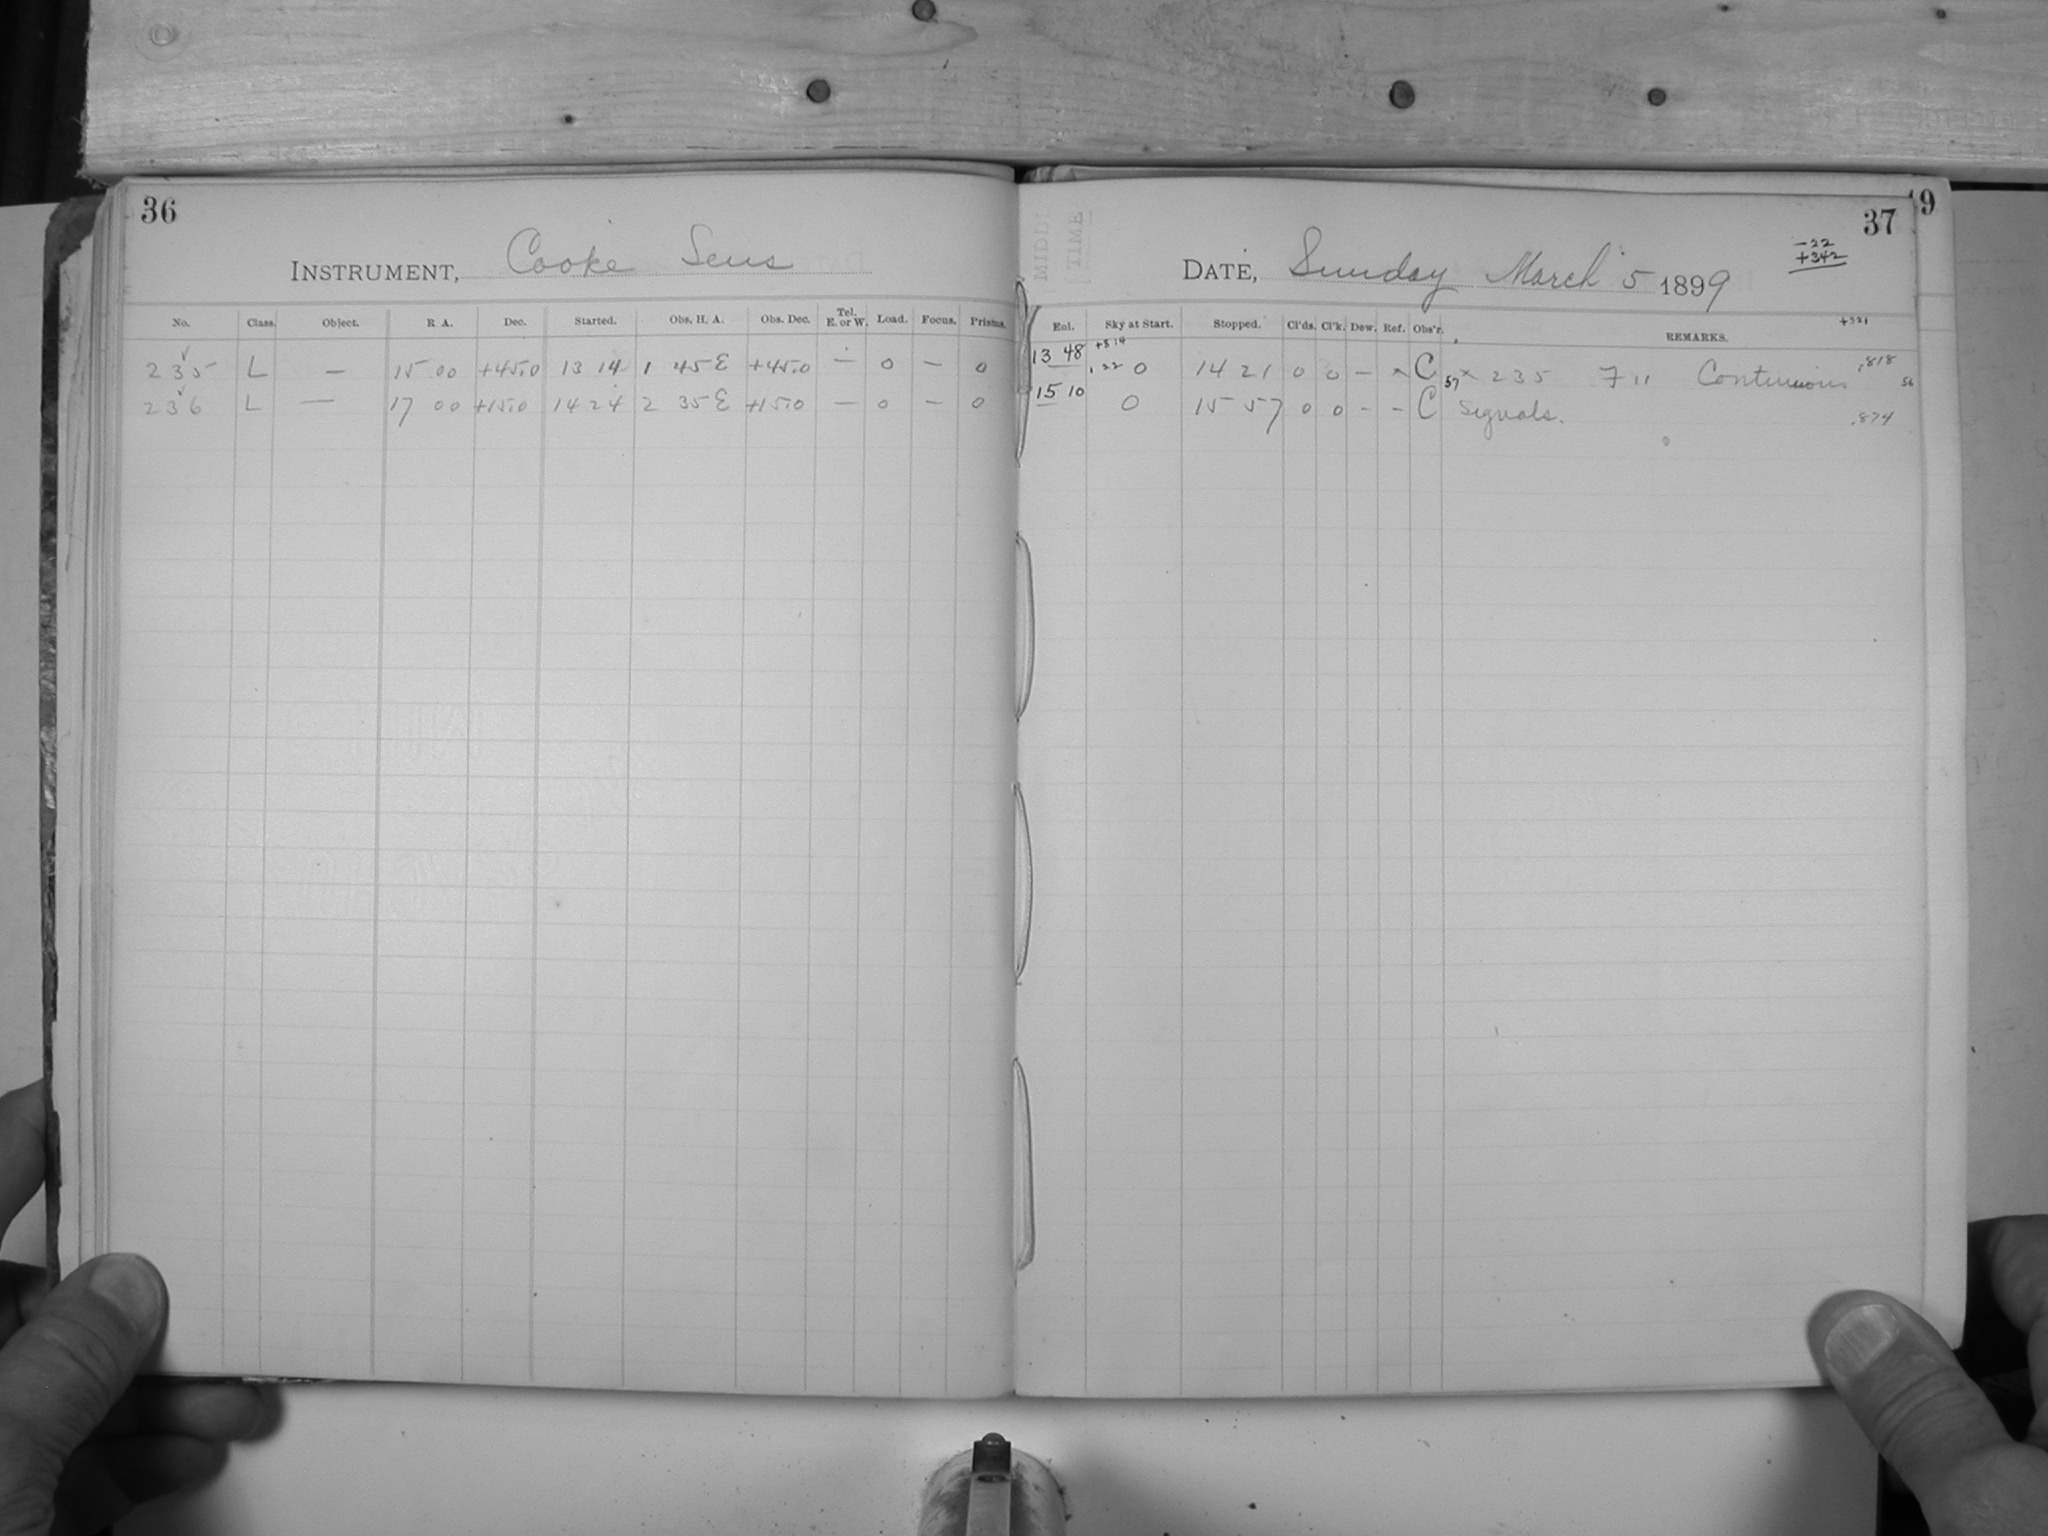 36
INSTRUMENT, Cooke Lens
No. Class. Object. R A. Dec. Started. Obs. H. A. Obs. Dec. Tel. E. or W. Load. Focus. Prisms.
235 L — 15 00 +45.0 13 14 1 45 E +45.0 — 0 — 0
236 L — 17 00 +15.0 14 24 2 35 E +15.0 — 0 — 0
19
37
-22
+342
MIDDL
TIME
DATE, Sunday March 5 1899
+321
Enl. Sky at Start. Stopped. Cl'ds. Cl'k. Dew. Ref. Obs'r. REMARKS.
13 48 +314 .22 0 14 21 0 0 — × C 57 × 235 F 11 Continuous .818 56
15 10 0 15 57 0 0 - - C Signals. .874